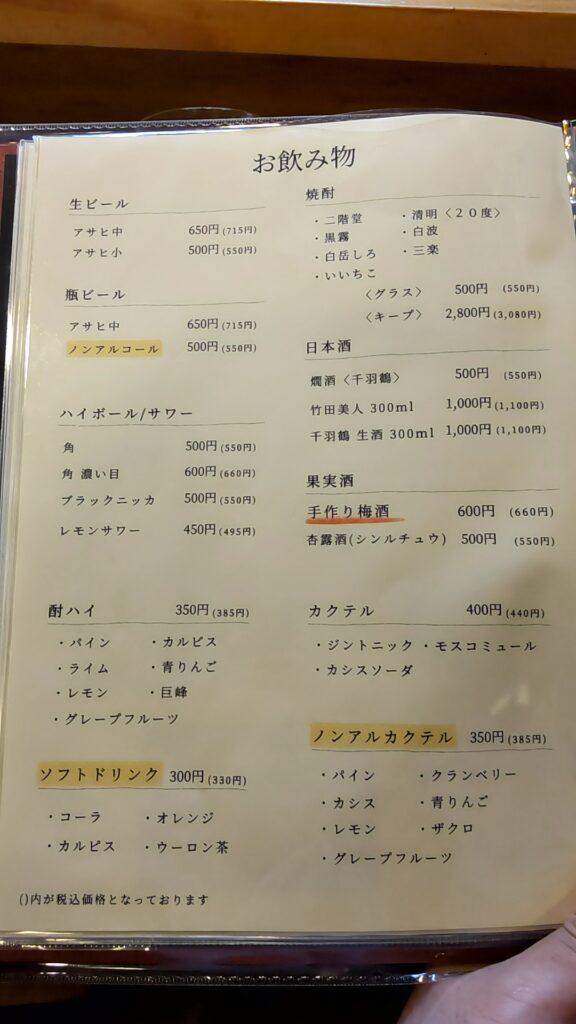 お飲み物
生ビール
アサヒ中 650円(715円)
アサヒ小 500円(550円)
瓶ビール
アサヒ中 650円(715円)
ノンアルコール 500円(550円)
ハイボール/サワー
角 500円(550円)
角 濃い目 600円(660円)
ブラックニッカ 500円(550円)
レモンサワー 450円(495円)
酎ハイ 350円(385円)
・パイン ・カルピス
・ライム ・青りんご
・レモン ・巨峰
・グレープフルーツ
ソフトドリンク 300円(330円)
・コーラ ・オレンジ
・カルピス ・ウーロン茶
()内が税込価格となっております
焼酎
・二階堂 ・清明〈20度〉
・黒霧 ・白波
・白岳しろ ・三楽
・いいちこ
〈グラス〉 500円 (550円)
〈キープ〉 2,800円(3,080円)
日本酒
燗酒〈千羽鶴〉 500円 (550円)
竹田美人 300ml 1,000円(1,100円)
千羽鶴 生酒 300ml 1,000円(1,100円)
果実酒
手作り梅酒 600円 (660円)
杏露酒(シンルチュウ) 500円 (550円)
カクテル 400円(440円)
・ジントニック ・モスコミュール
・カシスソーダ
ノンアルカクテル 350円(385円)
・パイン ・クランベリー
・カシス ・青りんご
・レモン ・ザクロ
・グレープフルーツ